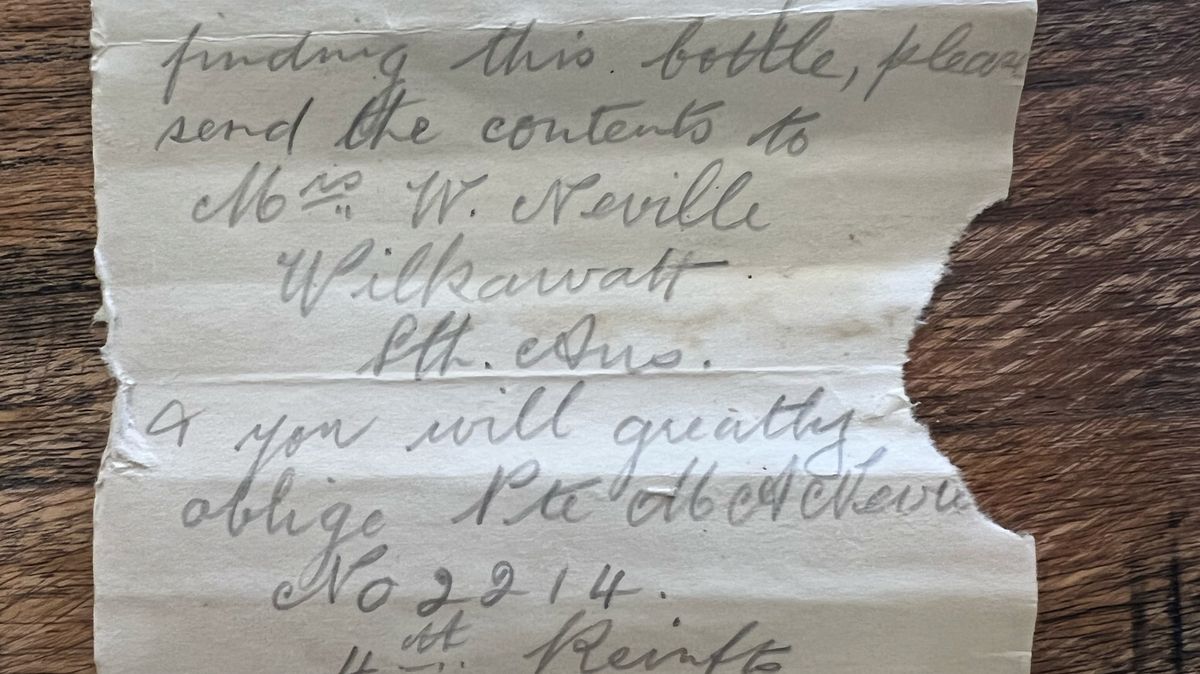 finding this bottle, please
send the contents to
Mrs W. Neville
Wilkawatt
Sth. Aus.
& you will greatly
oblige Pte M A Nevi
No 2214.
4th Reinfts